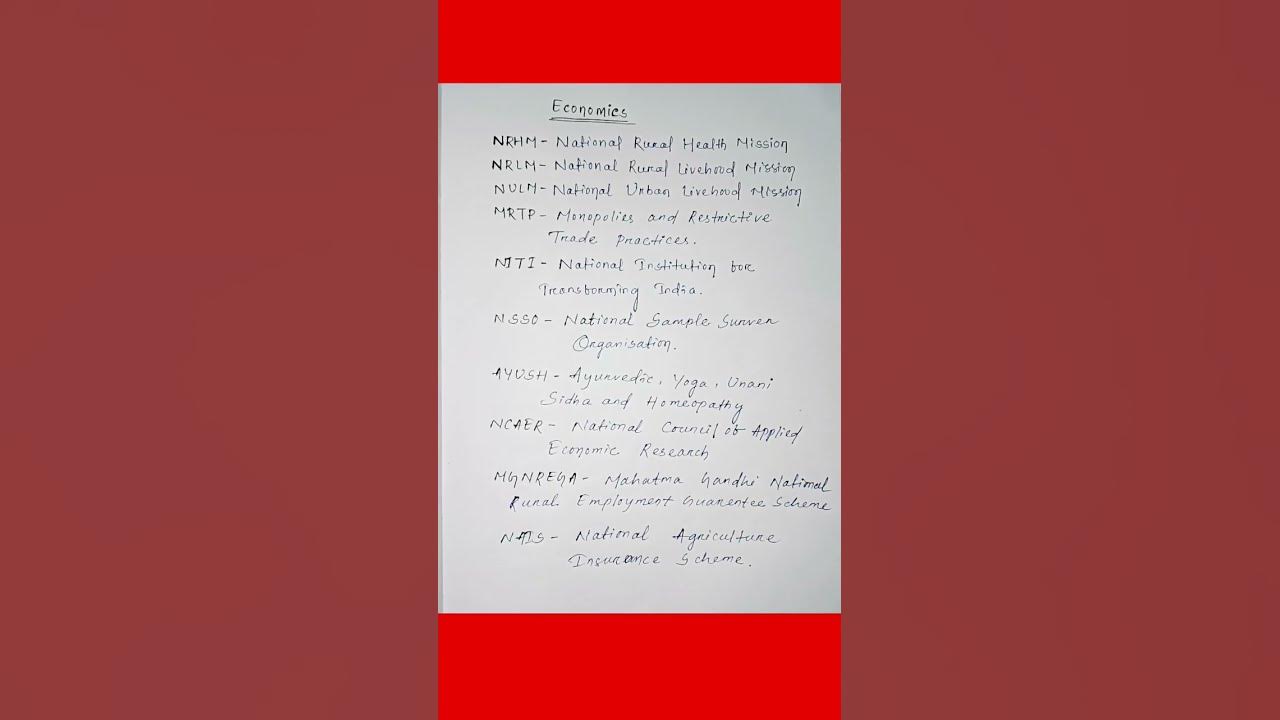 Economics
NRHM - National Rural Health Mission
NRLM - National Rural Livehood Mission
NULM - National Urban Livehood Mission
MRTP - Monopolies and Restrictive
Trade Practices.
NITI - National Institution for
Transforming India.
NSSO - National Sample Surver
Organisation.
AYUSH - Ayurvedic, Yoga, Unani
Sidha and Homeopathy
NCAER - National Council of Applied
Economic Research
MGNREGA - Mahatma Gandhi National
Rural Employment Guarentee Scheme
NAIS - National Agriculture
Insurance Scheme.